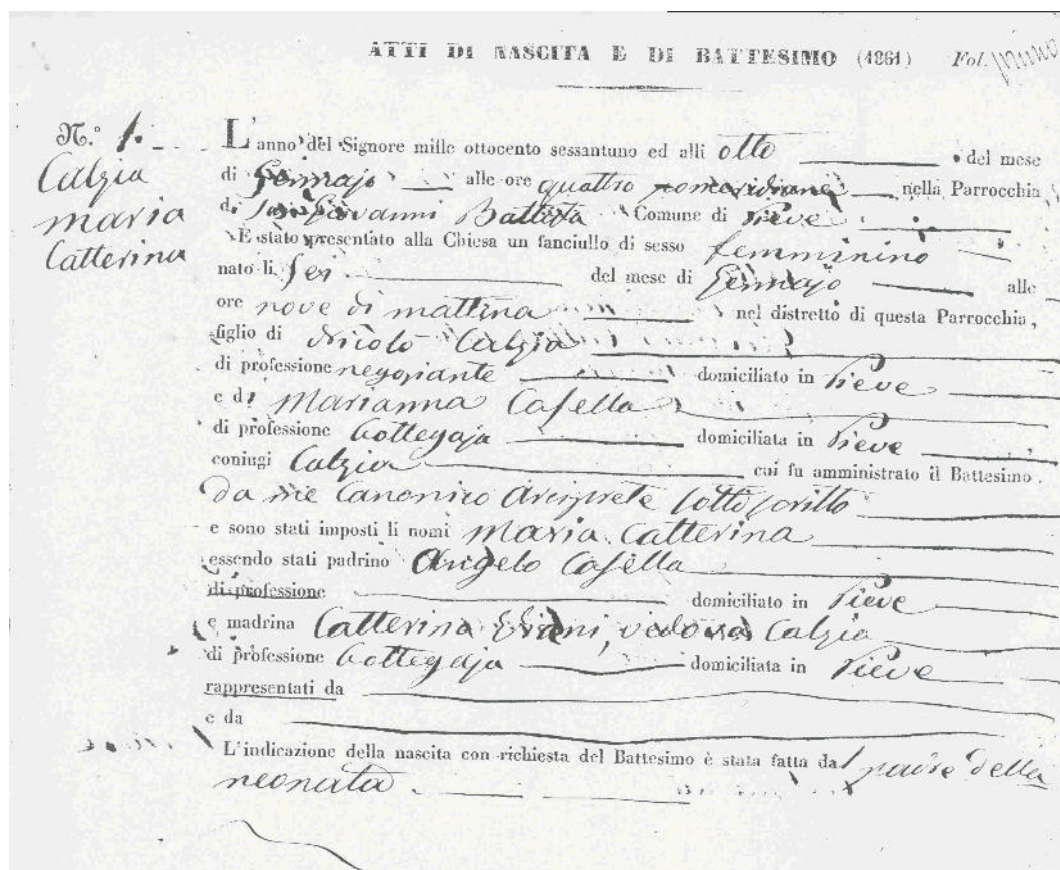 ATTI DI NASCITA E DI BATTESIMO (1861) Fol. primo
N.º 1.
Calzia
maria
Catterina
L'anno del Signore mille ottocento sessantuno ed alli otto del mese
di Gennajo alle ore quattro pomeridiane nella Parrocchia
di San Giovanni Battista Comune di Pieve
È stato presentato alla Chiesa un fanciullo di sesso femminino
nato li Sei del mese di Gennajo alle
ore nove di mattina nel distretto di questa Parrocchia,
figlio di Nicolò Calzia
di professione negoziante domiciliato in Pieve
e di Marianna Casella
di professione bottegaja domiciliata in Pieve
coniugi Calzia cui fu amministrato il Battesimo
da me Canonico Arciprete sottoscritto
e sono stati imposti li nomi Maria Catterina
essendo stati padrino Angelo Casella
di professione domiciliato in Pieve
e madrina Catterina vedova Calzia
di professione bottegaja domiciliata in Pieve
rappresentati da
e da
L'indicazione della nascita con richiesta del Battesimo è stata fatta dal padre della
neonata.